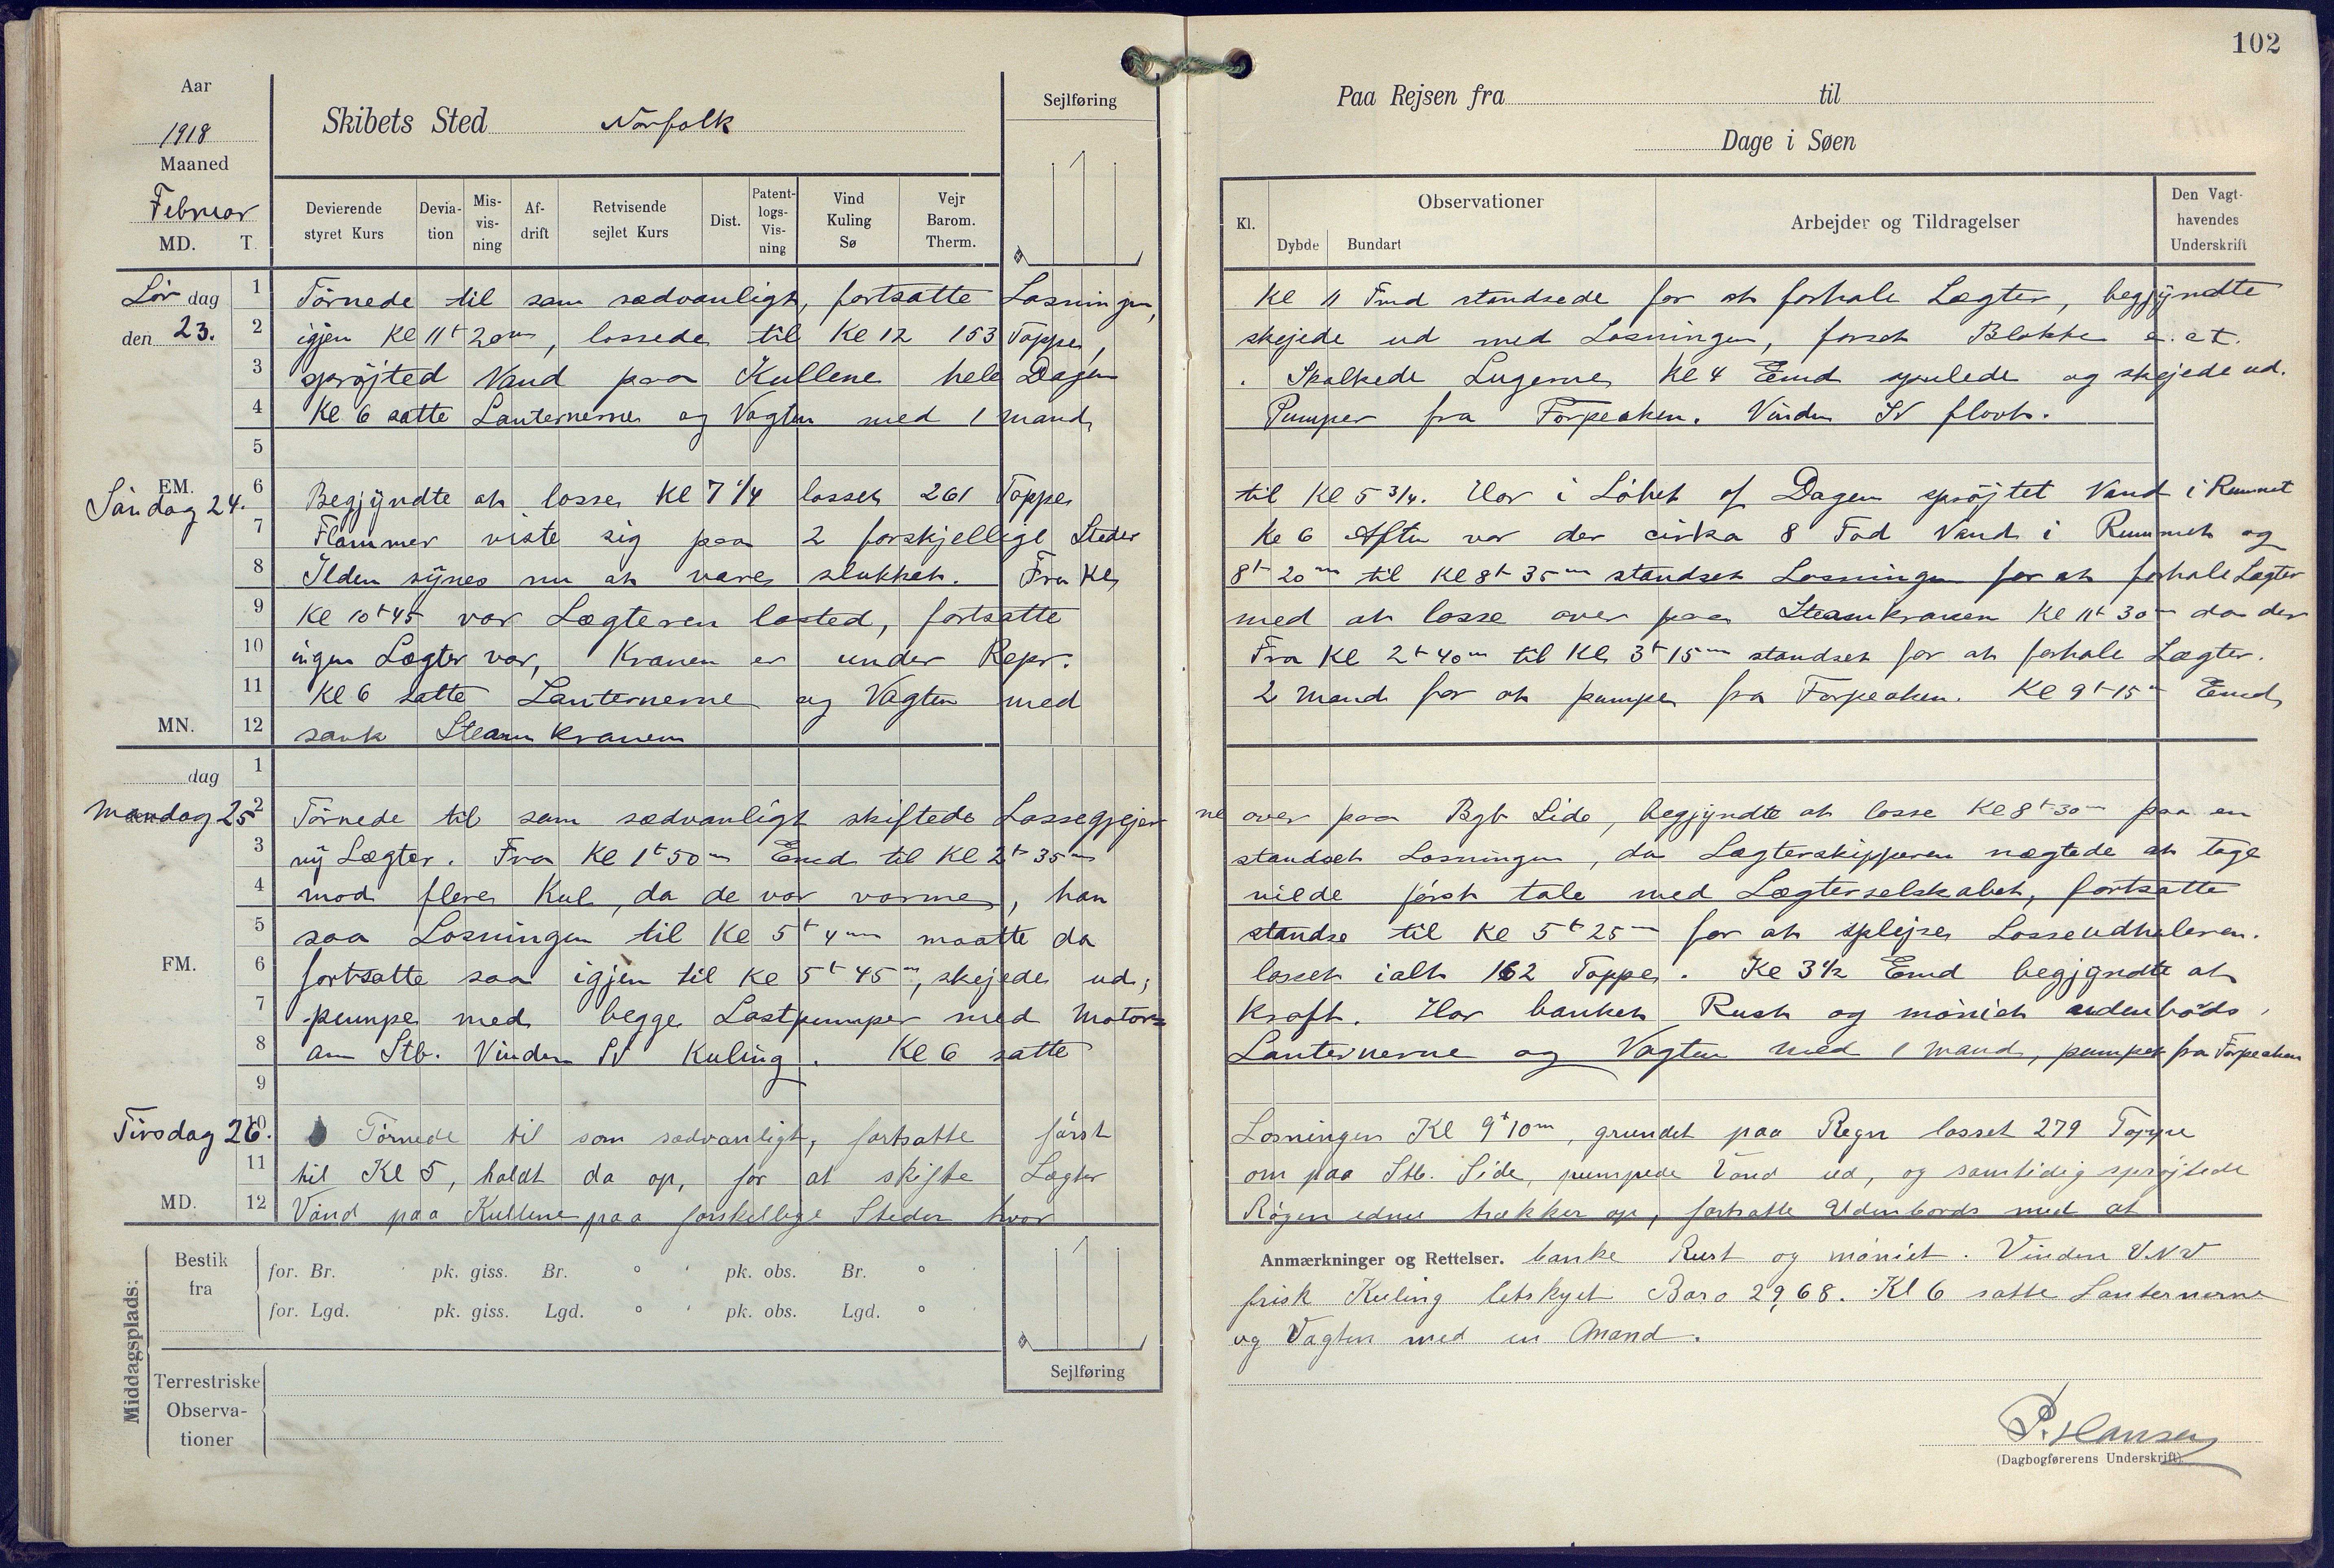 102
Aar
1918
Maaned
Februar
MD. T.
Skibets Sted Norfolk
Sejlføring
Paa Rejsen fra til
Dage i Søen
Devierende styret Kurs
Deviation
Misvisning
Afdrift
Retvisende sejlet Kurs
Dist.
Patentlogs-Visning
Vind Kuling Sø
Vejr Barom. Therm.
Kl.
Observationer
Dybde Bundart
Arbejder og Tildragelser
Den Vagthavendes Underskrift
Lör dag 1 Törnede til som sædvanligt, fortsatte Losningen, Kl 11 Fmd standsede for at forhale Lægter, begjyndte
den 23. 2 igjen Kl 11t 20m, lossede til Kl 12 153 Toppe, skejede ud med Losningen, forset Blokke e. ct.
3 sprøjted Vand paa Kullene hele Dagen . Skalkede Lugerne Kl 4 Emd spulede og skejede ud.
4 Kl 6 satte Lanternerne og Vagten med 1 mand, Pumper fra Forpeaken. Vinden SV flovt.
5
EM. 6 Begjyndte at losse Kl 7 1/4 losset 261 Toppe til Kl 5 3/4. Har i Löbet af Dagen spröjtet Vand i Rummet
Söndag 24. 7 Flammer viste sig paa 2 forskjellige Steder Kl 6 Aften var der cirka 8 Fod Vand i Rummet og
8 Ilden synes nu at være slukket. Fra Kl, 8t 20m til Kl 8t 35m standset Losningen for at forhale Lægter
9 Kl 10t 45 var Lægteren lasted, fortsatte med at losse over paa Steamkranen Kl 11t 30m da der
10 ingen Lægter var, Kranen er under Repr. Fra Kl 2t 40m til Kl 3t 15m standset for at forhale Lægter.
11 Kl 6 satte Lanternerne og Vagten med 2 mand for at pumpe fra Forpeaken. Kl 9t 15m Emd,
MN. 12 sank Steamkranen
dag 1
Mandag 25 2 Törnede til som sædvanligt skiftede Lossegrejer ne over paa Bgb Side, begjyndte at losse Kl 8t 30m paa en
3 ny Lægter. Fra Kl 1t 50m Emd til Kl 2t 35m standset Losningen, da Lægterskipperen nægtede at tage
4 mod flere Kul, da de var varme, han vilde först tale med Lægterselskabet, fortsatte
5 saa Losningen til Kl 5t 4m maatte da standse til Kl 5t 25m for at splejse Losseudhaleren.
FM. 6 fortsatte saa igjen til Kl 5t 45m, skejede ud, losset ialt 162 Toppe. Kl 3 1/2 Emd begjyndte at
7 pumpe med begge Lastpumper med Motor= Kraft. Har banket Rust og möniet udenbords,
8 om Stb. Vinden SV Kuling. Kl 6 satte Lanternerne og Vagten med 1 mand, pumpet fra Forpeaken
9
Tirsdag 26. 10 Törnede til som sædvanligt, fortsatte först Losningen Kl 9t 10m, grundet paa Regn losset 279 Toppe
11 til Kl 5, holdt da op, for at skifte Lægter om paa Stb. Side, pumpede Vand ud, og samtidig spröjtede
MD. 12 Vand paa Kullene paa forskellige Steder hvor Rögen ednu trækker op, fortsatte Udenbords med at
Middagsplads:
Bestik fra
for. Br. pk. giss. Br. ° ' pk. obs. Br. °
for. Lgd. pk. giss. Lgd. ° ' pk. obs. Lgd. °
Sejlføring
Terrestriske Observationer
Anmærkninger og Rettelser. banke Rust og möniet. Vinden VNV
frisk Kuling letskyet Baro 29,68. Kl 6 satte Lanternerne
og Vagten med en Mand.
P. Hansen
(Dagbogførerens Underskrift)